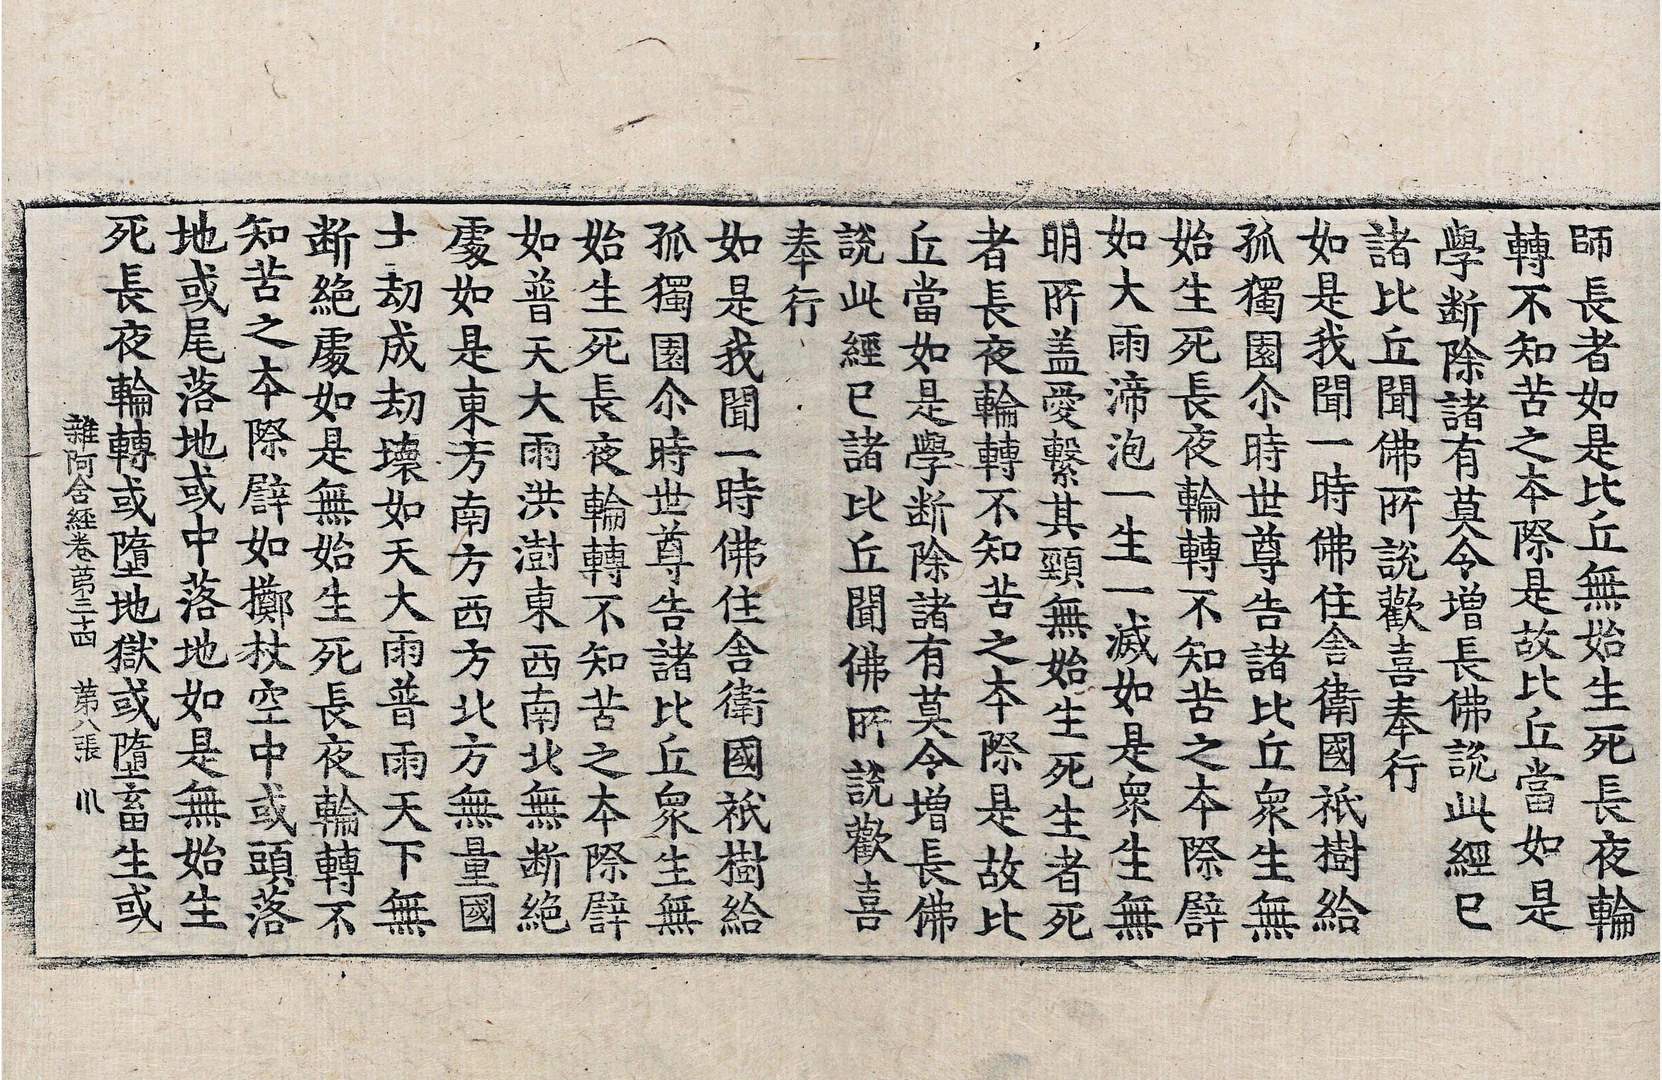 師長者如是比丘無始生死長夜輪
轉不知苦之夲際是故比丘當如是
學断除諸有莫令增長佛說此經已
諸比丘聞佛所說歡喜奉行
如是我聞一時佛住舎衛國祇樹給
孤獨園尒時世尊告諸比丘衆生無
始生死長夜輪轉不知苦之夲際譬
如大雨渧泡一生一滅如是衆生無
明所盖愛繫其頸無始生死生者死
者長夜輪轉不知苦之夲際是故比
丘當如是學断除諸有莫令增長佛
說此經已諸比丘聞佛所說歡喜
奉行
如是我聞一時佛住舎衛國祇樹給
孤獨園尒時世尊告諸比丘衆生無
始生死長夜輪轉不知苦之夲際譬
如普天大雨洪澍東西南北無断絶
處如是東方南方西方北方無量國
土劫成劫壞如天大雨普雨天下無
断絶處如是無始生死長夜輪轉不
知苦之夲際譬如擲杖空中或頭落
地或尾落地或中落地如是無始生
死長夜輪轉或墮地獄或墮畜生或
雜阿含經卷第三十四 第八張 川